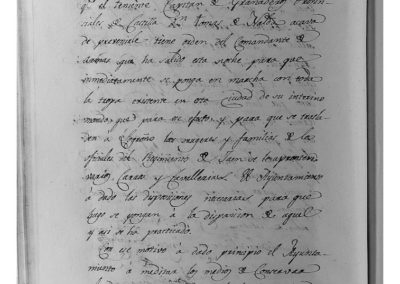 q.e el teniente Capitan de Granaderos Provin-
ciales de Castilla Dn Tomas de acava
de prevenirle tiene orden del Comandante de
Armas que ha salido esta noche para que
inmediatamente se ponga en marcha con toda
la tropa existente en esta Ciudad de su interino
mando, que para su efecto, y para que se trasla-
den a Logroño las mugeres y familias de los
oficiales del Regimiento de Jaen se
Carros y cavallerias. El Ayuntamiento
á dado las disposiciones necesarias para que
luego se pongan á la disposicion de aquel
y asi se ha practicado.
Con ese motivo á dado principio el Ayunta-
miento á meditar los medios de Conservar